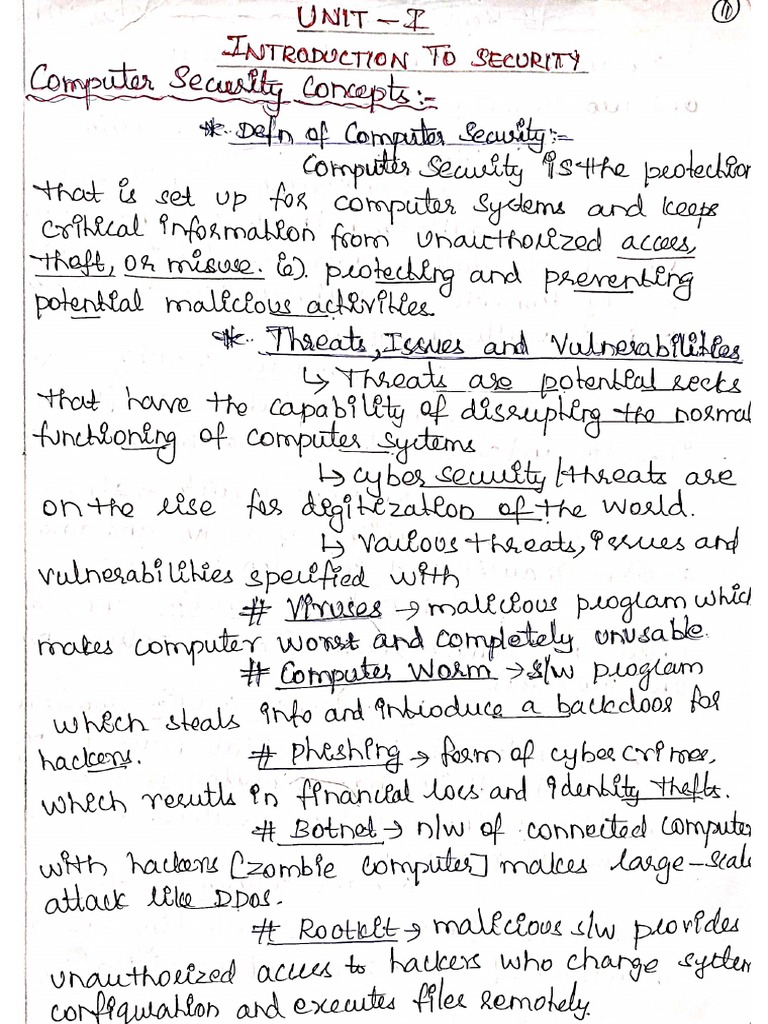 UNIT - I
11
INTRODUCTION TO SECURITY
Computer Security Concepts:-
* Defn of Computer Security:-
Computer Security is the protection
that is set up for computer systems and keeps
critical information from unauthorized access,
theft, or misuse. ie). protecting and preventing
potential malicious activities.
* Threats, Issues and Vulnerabilities
↳ Threats are potential risks
that have the capability of disrupting the normal
functioning of computer systems
↳ cyber security threats are
on the rise for digitization of the world.
↳ Various threats, issues and
vulnerabilities specified with
# Viruses → malicious program which
makes computer worst and completely unusable.
# Computer Worm → s/w program
which steals info and introduce a backdoor for
hackers.
# Phishing → form of cyber crimes,
which results in financial loss and identity thefts.
# Botnet → n/w of connected computer
with hackers [zombie computer] makes large-scale
attack like DDos.
# Rootkit → malicious s/w provides
unauthorized access to hackers who change system
configuration and executes files remotely.